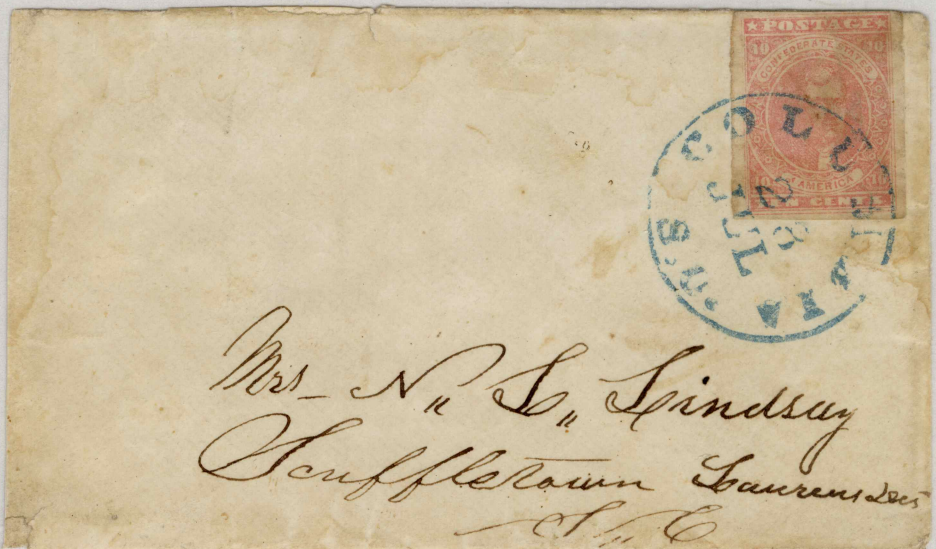 ★ POSTAGE ★
10 10
CONFEDERATE STATES
OF AMERICA
10 10
TEN CENTS
COLUMBIA S.C.
JUL
28
Mrs_ N,, L,, Lindsay
Scuffletown Laurens Dis
S,, C